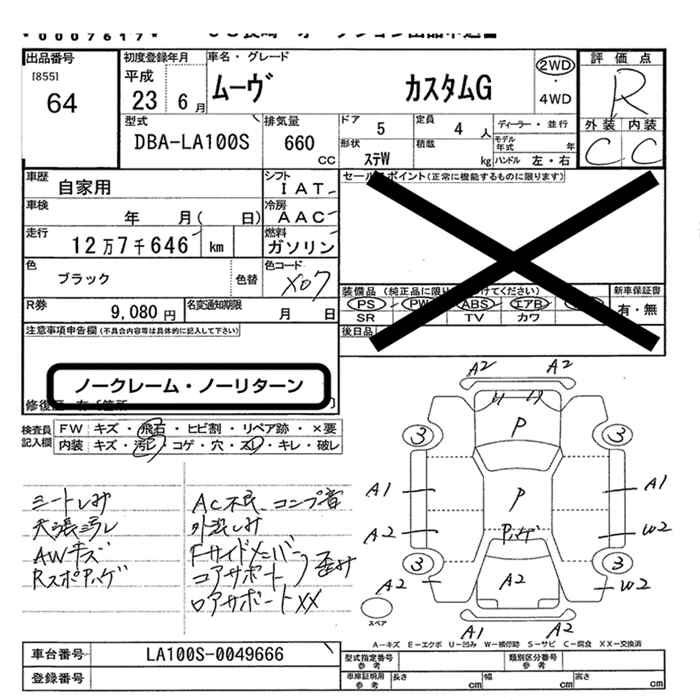 出品番号
[855]
64
初度登録年月
平成
23 6 月
車名・グレード
ムーヴ カスタムG
2WD
・
4WD
評価点
R
外装 内装
C C
型式
DBA-LA100S
排気量
660
CC
ドア
5
定員
4 人
ディーラー・並行
モデル年式 年
形状
ステW
積載
kg
ハンドル 左・右
車歴
自家用
シフト
IAT
車検
年 月( 日)
冷房
AAC
走行
12万7千646 km
燃料
ガソリン
色
ブラック
色替
色コード
X07
R券
9,080 円
名変通知期限
月 日
セールスポイント(正常に機能するものに限ります)
PS PW ABS エアB
SR TV カワ
新車保証書
有・無
後日品
注意事項申告欄(不具合内容等は具体的に記入して下さい)
ノークレーム・ノーリターン
検査員
記入欄
FW キズ・飛石・ヒビ割・リペア跡・×要
内装 キズ・汚レ・コゲ・穴・スレ・キレ・破レ
シートしみ
天張汚レ
AWキズ
AC不良 コンプ音
コアサポート
ロアサポートXX
A2 A2
P
3 3
A1 P A1
A2 W2
3 3
A2 A2 W2
A1 A2
スペア
A−キズ E−エクボ U−凹み W−補修跡 S−サビ C−腐食 XX−交換済
車台番号
LA100S-0049666
登録番号
型式指定番号
参考
類別区分番号
参考
車庫証明用
参考
長さ cm
幅 cm
高さ cm